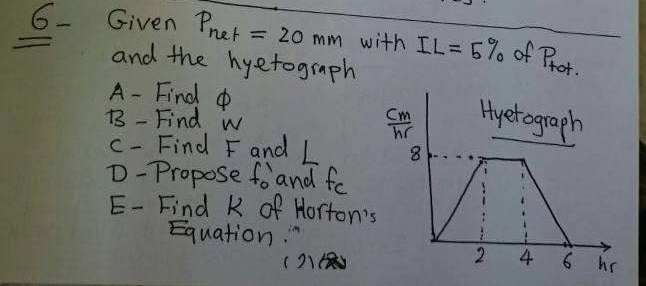 6- Given Pnet = 20 mm with IL = 5% of Ptot.
and the hyetograph
A - Find φ
B - Find W
C - Find F and L
D - Propose fo and fc
E - Find K of Horton's
Equation.
Hyetograph
cm
hr
8
2 4 6 hr